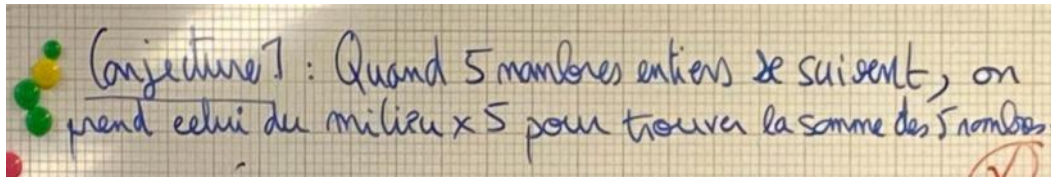 Conjecture 1 : Quand 5 nombres entiers se suivent, on
prend celui du milieu x 5 pour trouver la somme des 5 nombres